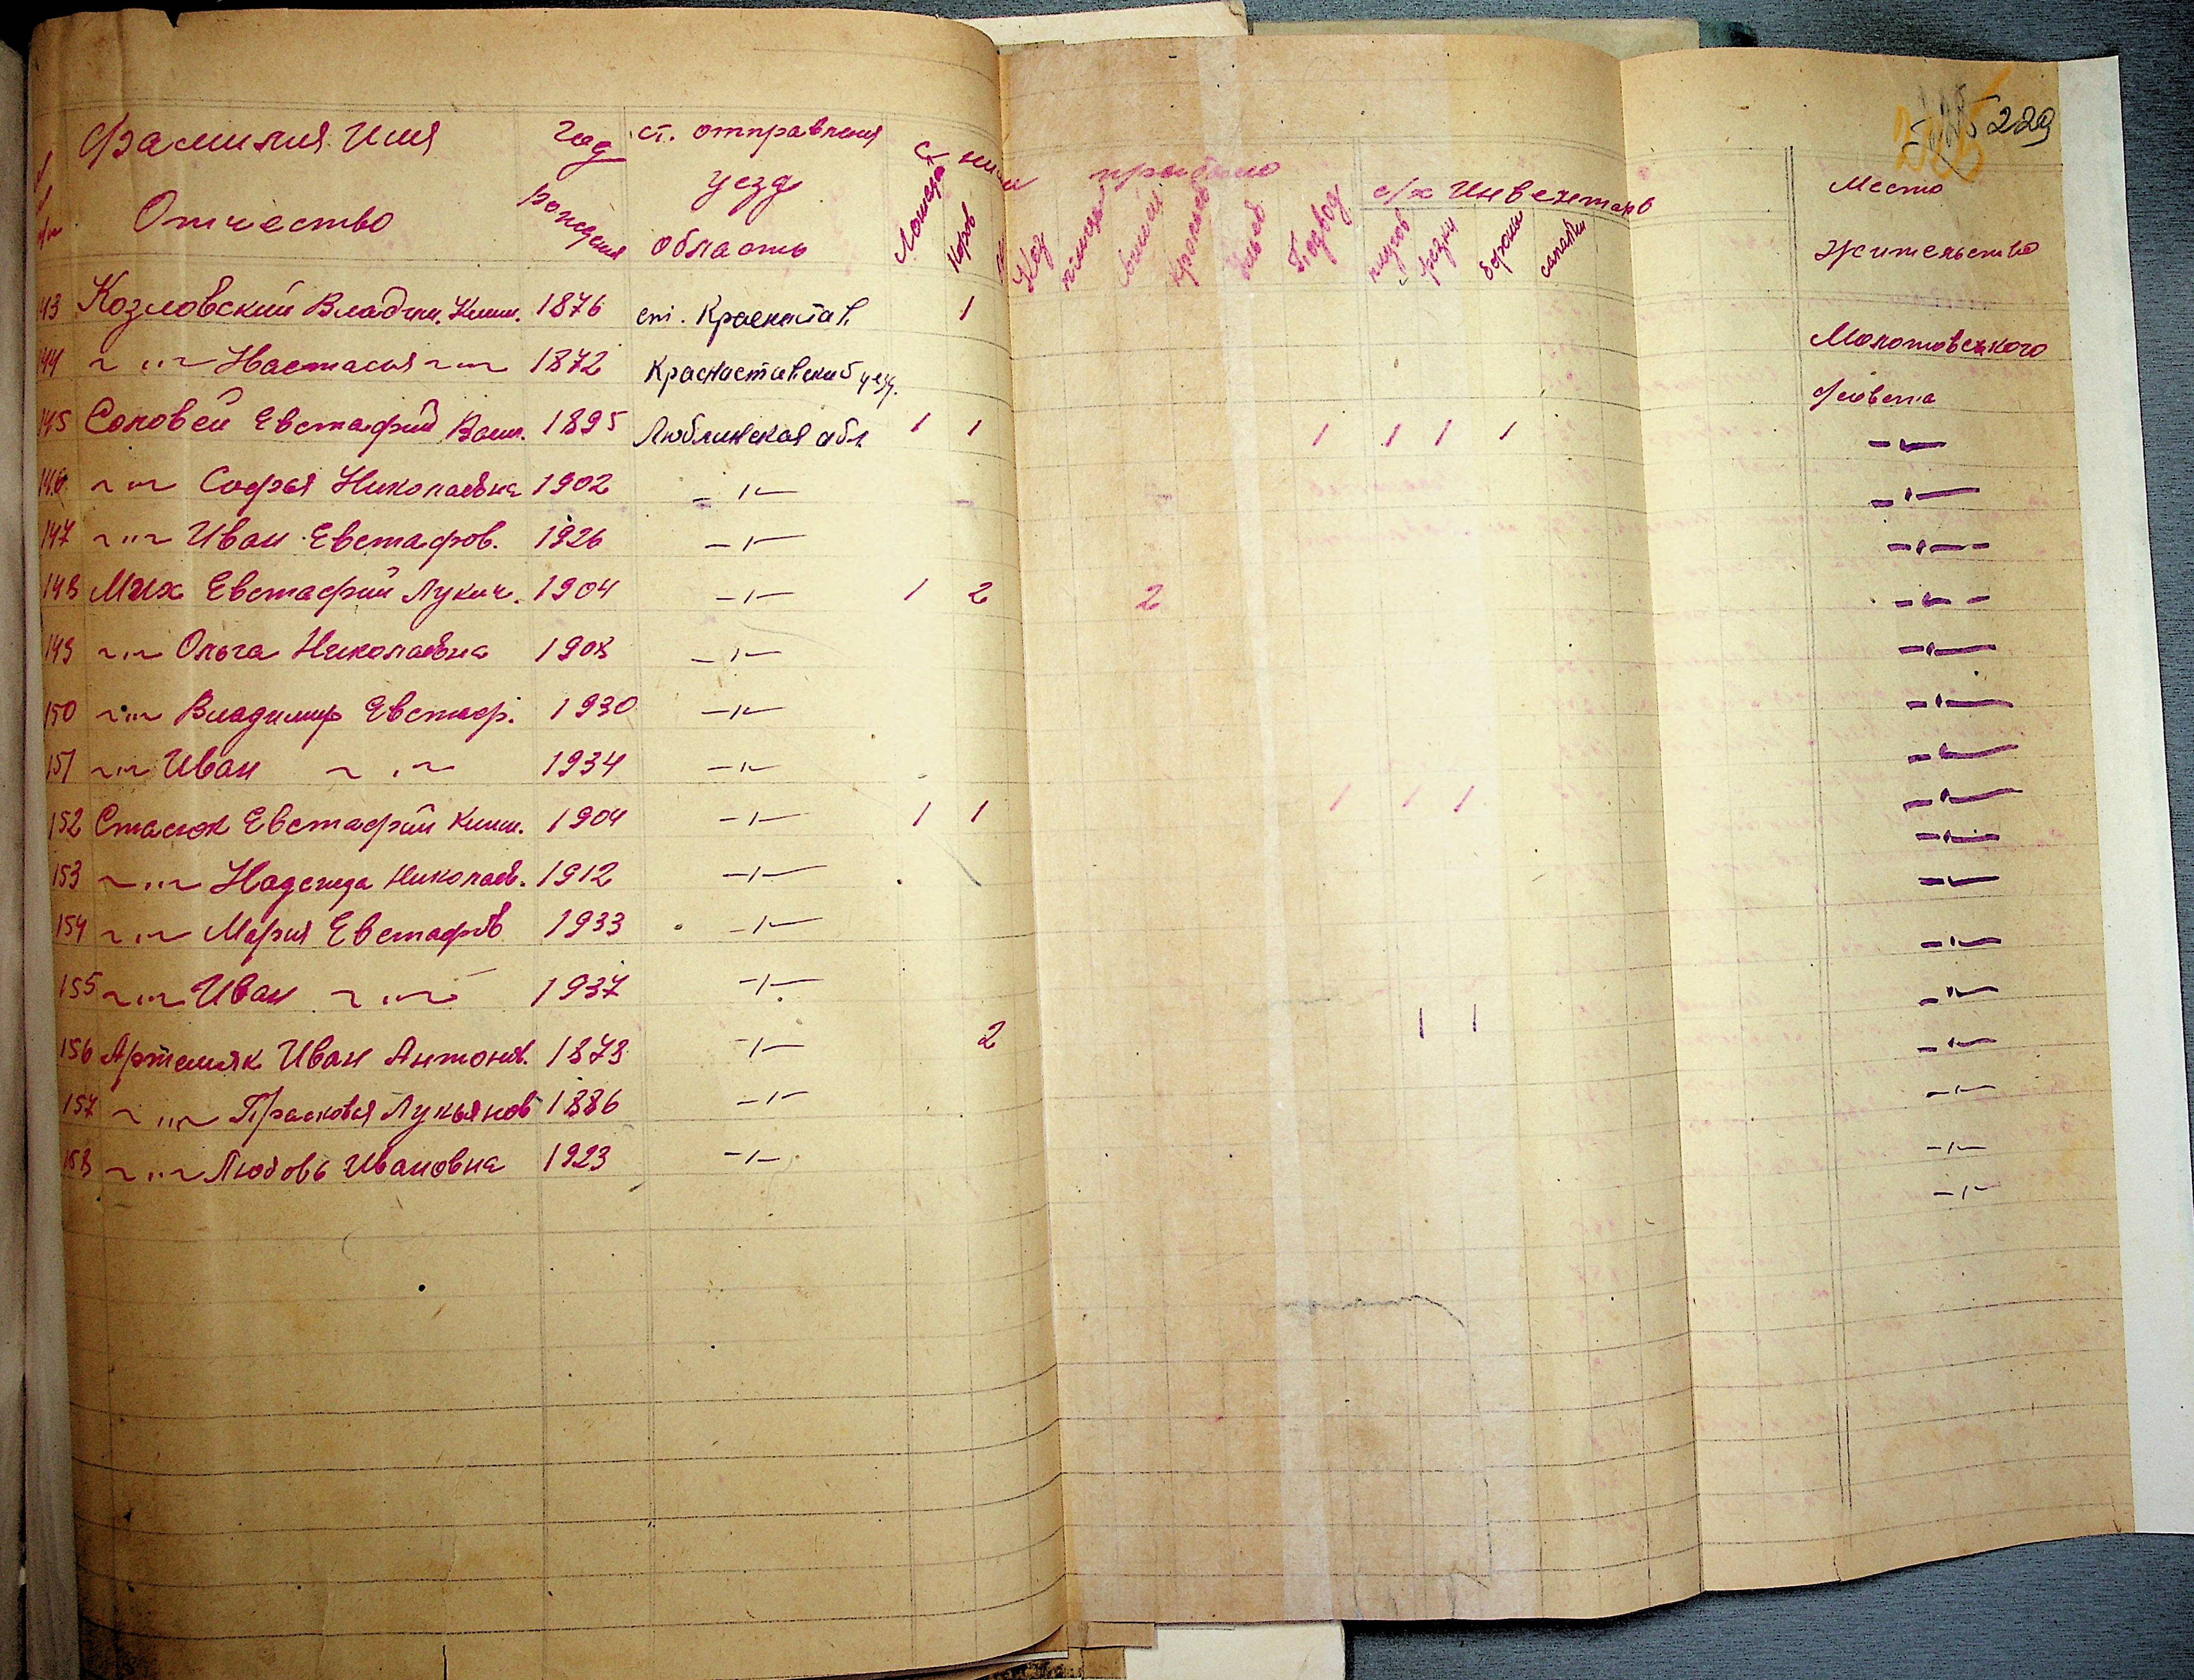 229
Фамилия Имя Отчество
Год рождения
ст. отправления уезд область
С ними прибыло
Лошадей
Коров
Коз
Свиней
Подвод
с/х Инвентарь
плугов
резки
борон
сапалки
Место жительства
143 Козловский Владим. Клим. 1876 ст. Красностав. 1 Молотовского с/совета
144 ~ „ ~ Настасья ~ „ ~ 1872 Красноставский уезд.
145 Соловей Евстафий Васил. 1895 Люблинская обл 1 1 1 1 1 1 — „ —
146 ~ „ ~ Софья Николаевна 1902 — „ — — „ —
147 ~ „ ~ Иван Евстафов. 1926 — „ — — „ —
148 Мих Евстафий Лукич. 1904 — „ — 1 2 2 — „ —
149 ~ „ ~ Ольга Николаевна 1908 — „ — — „ —
150 ~ „ ~ Владимир Евстаф. 1930 — „ — — „ —
151 ~ „ ~ Иван ~ „ ~ 1934 — „ — — „ —
152 Стасюк Евстафий Клим. 1904 — „ — 1 1 1 1 1 — „ —
153 ~ „ ~ Надежда Николаев. 1912 — „ — — „ —
154 ~ „ ~ Мария Евстафов 1933 — „ — — „ —
155 ~ „ ~ Иван ~ „ ~ 1937 — „ — — „ —
156 Артемяк Иван Антонов. 1878 — „ — 2 1 1 — „ —
157 ~ „ ~ Прасковья Лукьянов 1886 — „ — — „ —
158 ~ „ ~ Любовь Ивановна 1923 — „ — — „ —